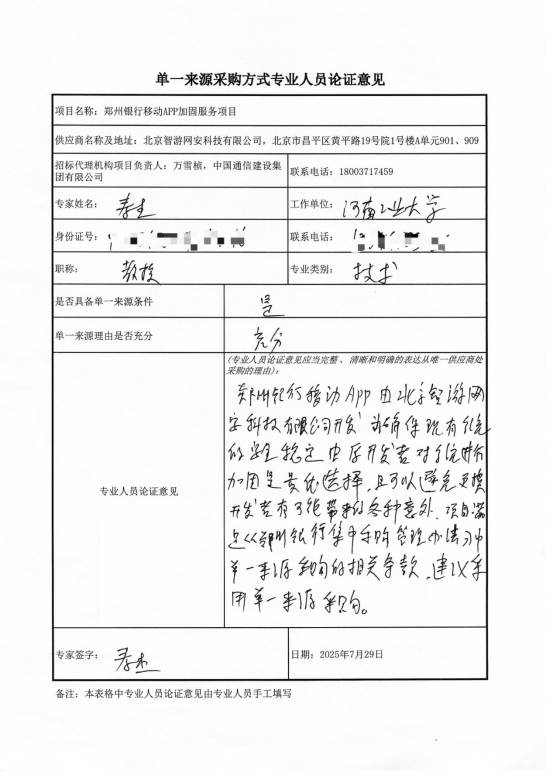 单一来源采购方式专业人员论证意见
项目名称：郑州银行移动APP加固服务项目
供应商名称及地址：北京智游网安科技有限公司，北京市昌平区黄平路19号院1号楼A单元901、909
招标代理机构项目负责人：万雪桢，中国通信建设集
团有限公司
联系电话：18003717459
专家姓名：
工作单位：河南工业大学
身份证号：
联系电话：
职称：教授
专业类别：技术
是否具备单一来源条件
是
单一来源理由是否充分
充分
（专业人员论证意见应当完整、清晰和明确的表达从唯一供应商处
采购的理由）：
专业人员论证意见
郑州银行移动App由北京智游网
安科技有限公司开发 为确保现有系统
的安全稳定由原开发者对系统进行
加固是最优选择，且可以避免更换
开发者有可能带来的各种意外，项目满
足《郑州银行集中采购管理办法》中
单一来源采购的相关条款，建议采
用单一来源采购。
专家签字：
日期：2025年7月29日
备注：本表格中专业人员论证意见由专业人员手工填写